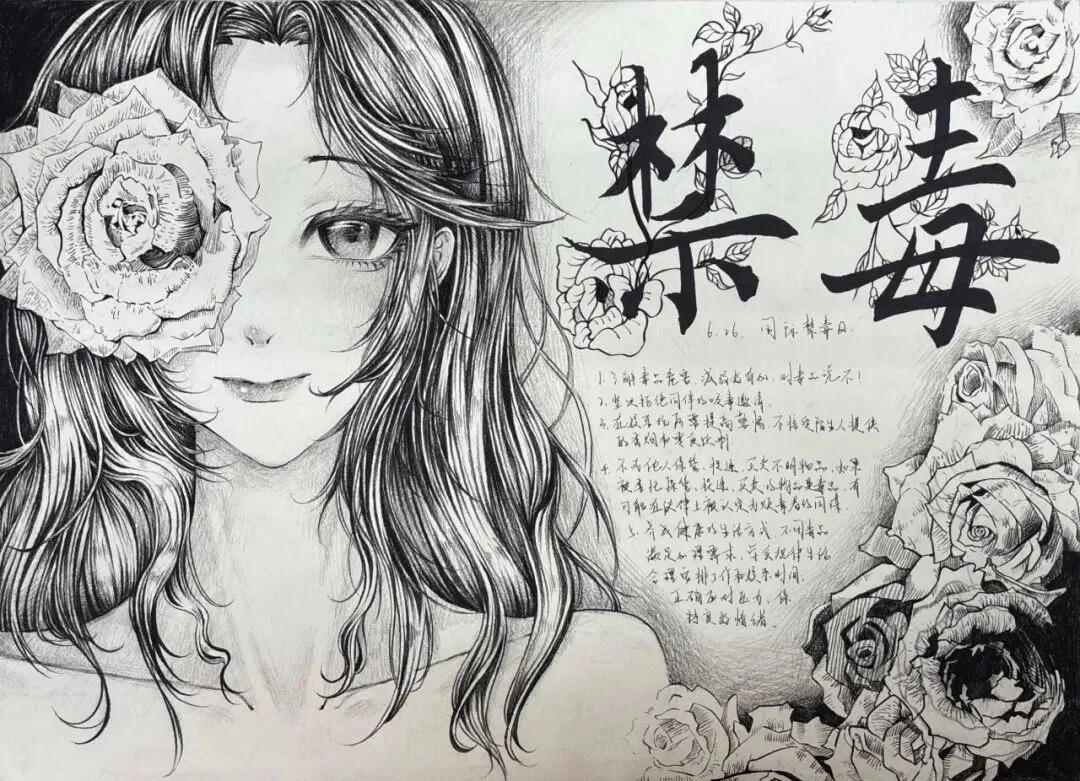 禁毒
6.26. 国际禁毒日.
1.了解毒品危害,
对毒品说不!
2.坚决拒绝同伴的吸毒邀请.
3.在娱乐场所要提高警惕,不接受陌生人提供
的香烟和
4.不为他人保管、投递、买卖不明物品,如果
被委托保管、投递、买卖的物品是毒品,有
可能在法律上被认定为贩毒者的同谋
5.养成健康的生活方式,不用毒品
满足心理需求,学会规律生活
合理安排工作和娱乐时间.
正确面对压力、保
持良好情绪。